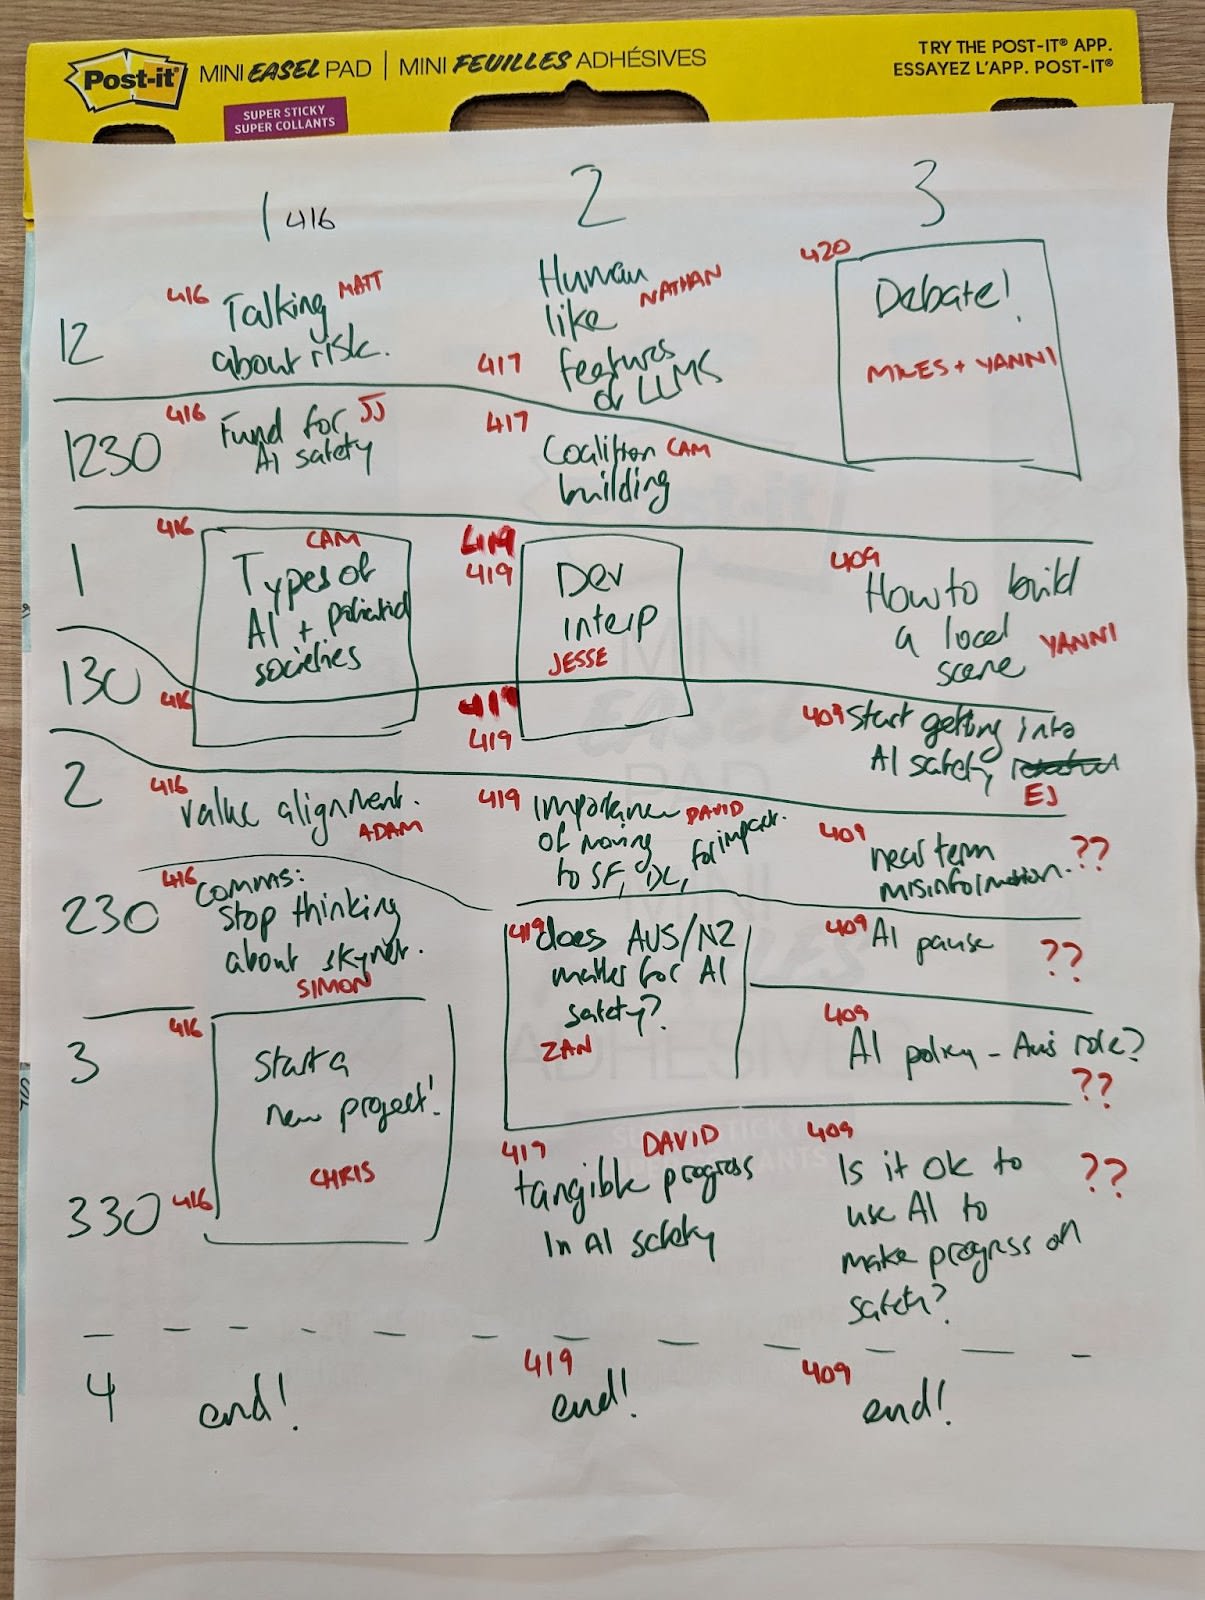 Post-it® MINI EASEL PAD | MINI FEUILLES ADHÉSIVES
TRY THE POST-IT® APP.
ESSAYEZ L'APP. POST-IT®
SUPER STICKY
SUPER COLLANTS
1 416
2
3
12
416 Talking MATT
about risk.
Human NATHAN
like
417 features
of LLMS
420
Debate!
MILES + YANNI
1230
416 Fund for JJ
AI safety
417
Coalition CAM
building
1
416
CAM
Types of
AI +
societies
419
419
Dev
interp
JESSE
409
How to build
a local
scene YANNI
130
416
419
419
409 Start getting into
AI safety
EJ
2
416
value alignment.
ADAM
419 importance DAVID
of moving
to SF, DC, for impact.
409
near term ??
misinformation.
230
416 comms:
stop thinking
about skynet.
SIMON
419 does AUS/NZ
matter for AI
safety?
ZAN
409 AI pause ??
3
416
Start a
new project!
CHRIS
409
AI policy - Aus role?
??
330
416
417 DAVID
tangible progress
in AI safety
409
Is it ok to ??
use AI to
make progress on
safety?
4
end!
419
end!
409
end!